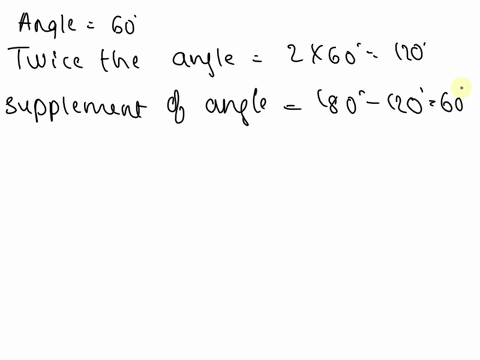 Angle = 60°
Twice the angle = 2 × 60° = 120°
supplement of angle = 180° - 120° = 60